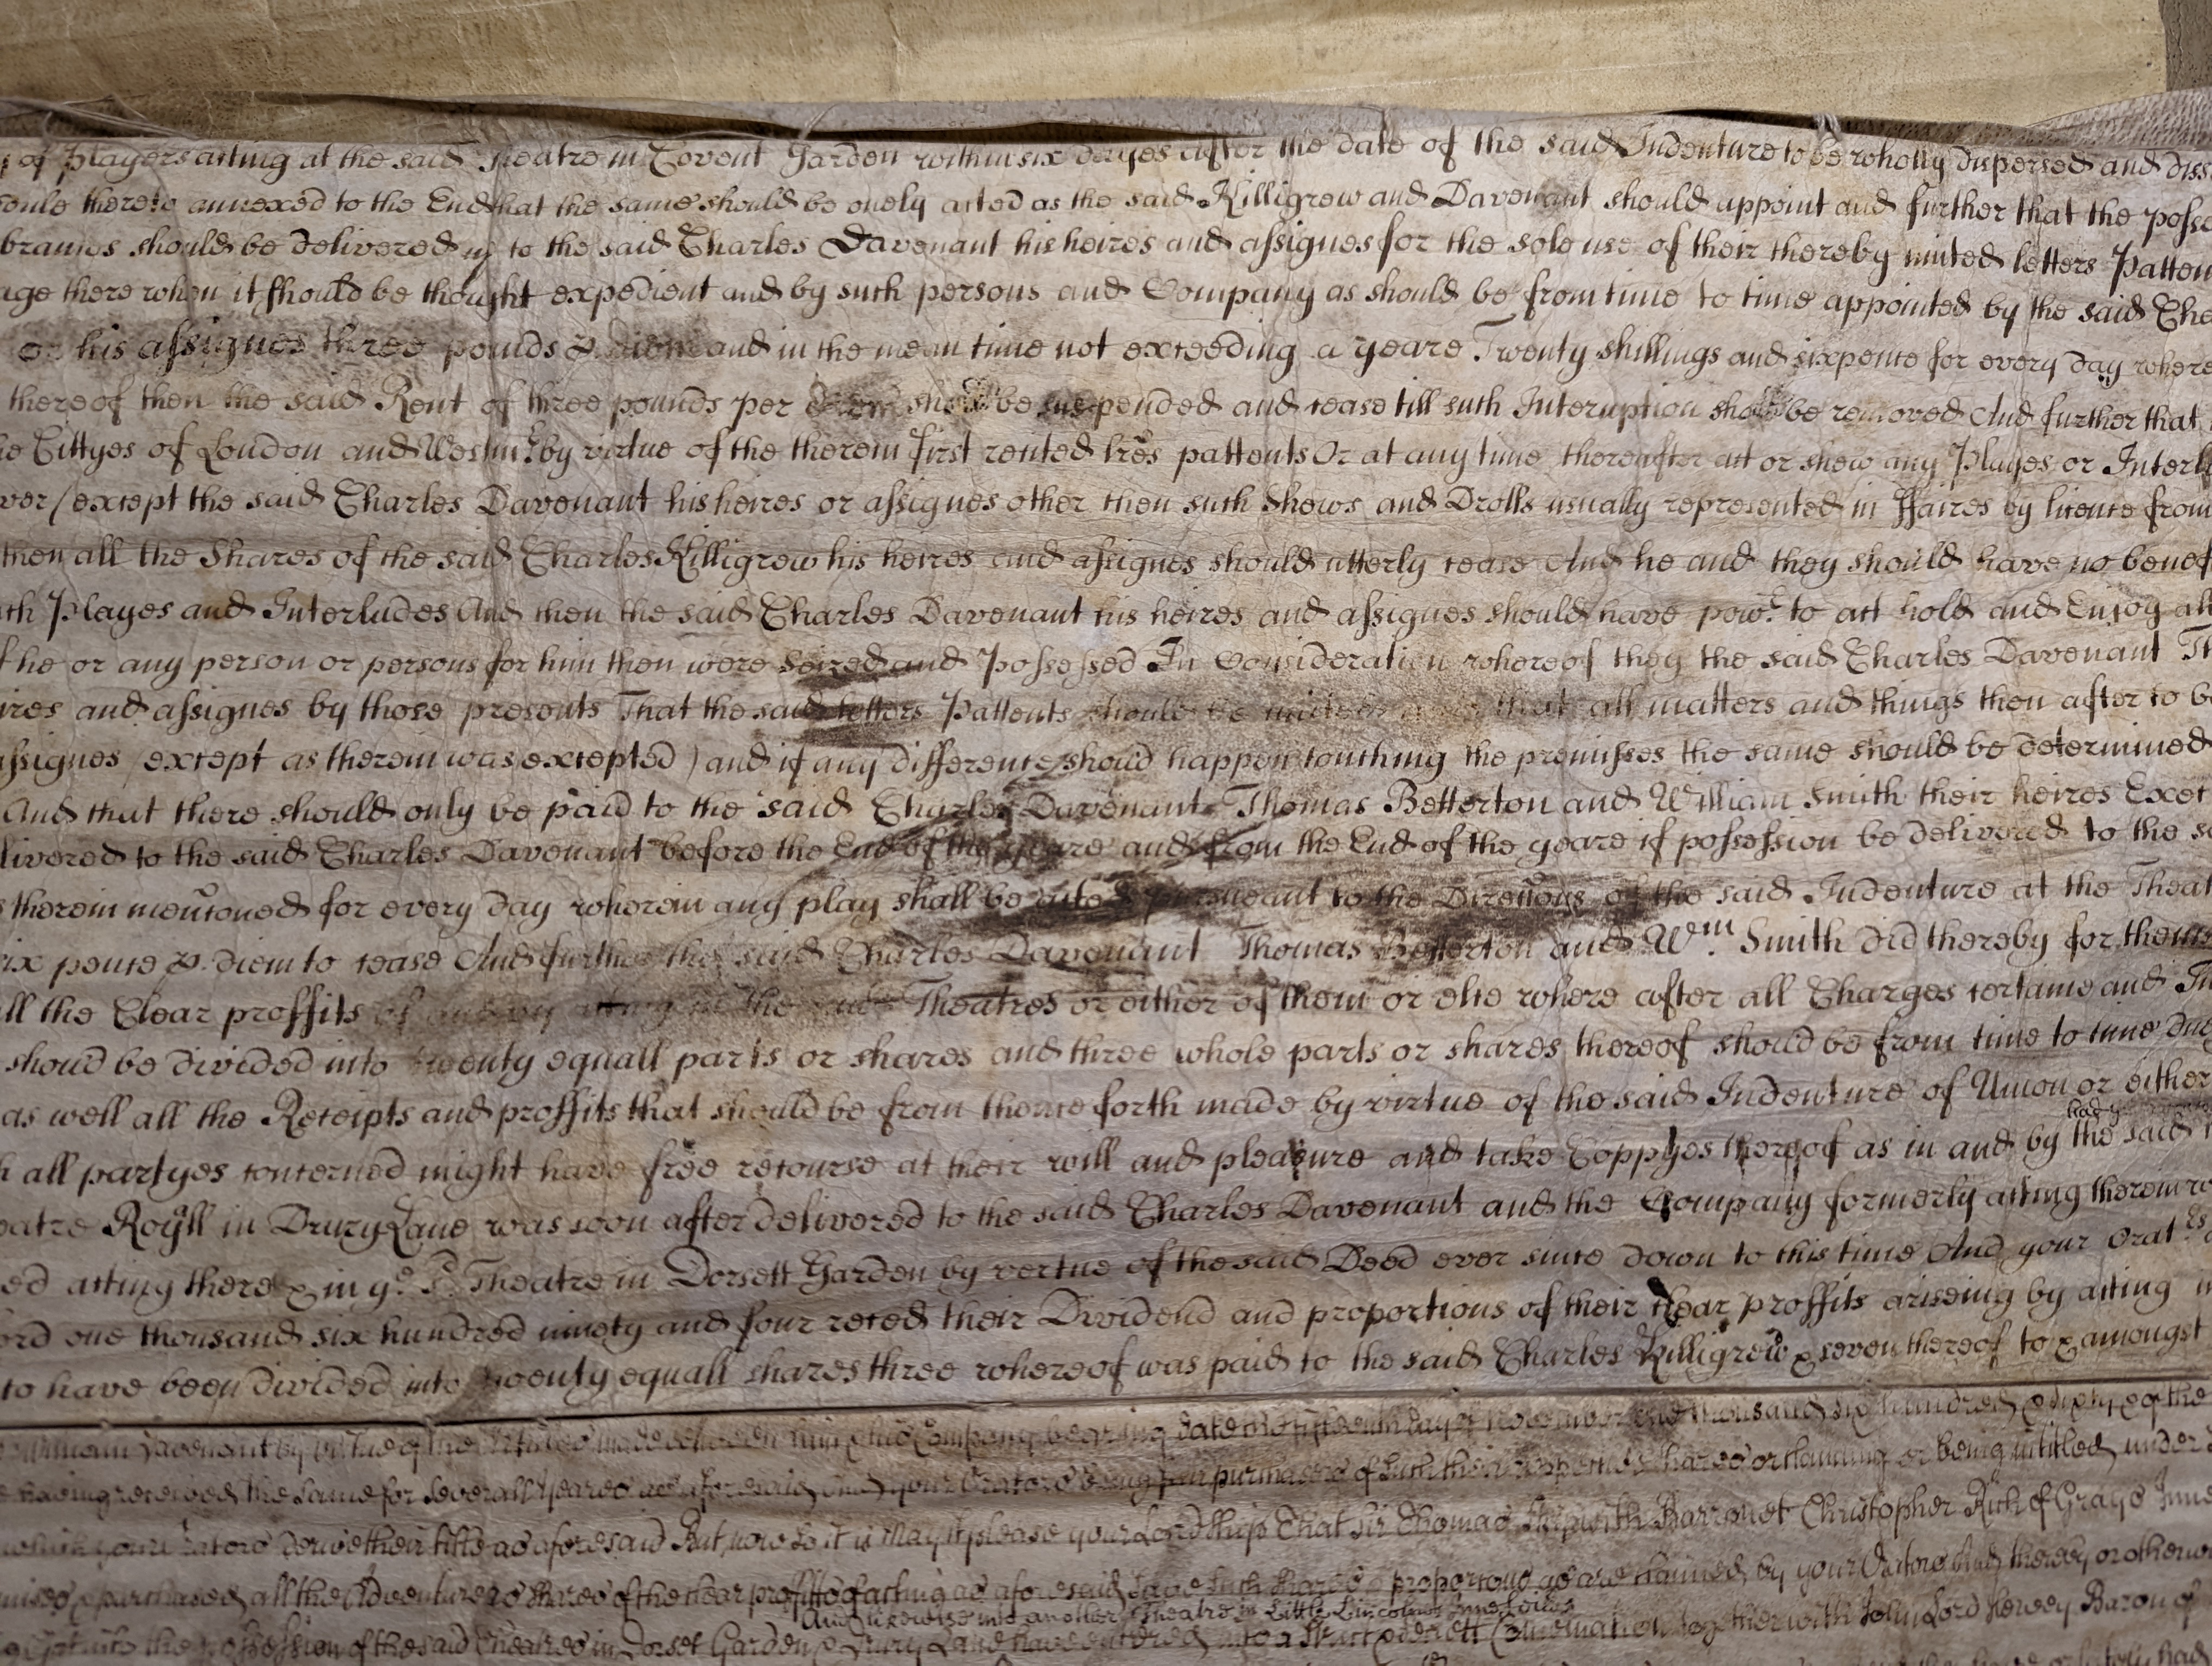 of Players acting at the said Theatre in Covent Garden within six dayes after the date of the said Indenture to be wholly dispersed and diss
thereto annexed to the End that the same should be onely acted as the said Killigrew and Davenant should appoint and further that the posse
should be delivered up to the said Charles Davenant his heires and assignes for the sole use of their thereby united letters Patten
age there when it should be thought expedient and by such persons and Company as should be from time to time appointed by the said Cha
or his assignes three pounds p. diem and in the mean time not exceeding a yeare Twenty shillings and sixpence for every day where
thereof then the said Rent of three pounds per diem should be suspended and cease till such Interuption should be removed And further that
Cittyes of London and Westmr. by virtue of the therein first recited lres pattents Or at any time thereafter act or shew any Playes or Interl
ver (except the said Charles Davenant his heires or assignes other then such Shews and Drolls usually represented in ffaires by licence from
then all the Shares of the said Charles Killigrew his heires and assignes should utterly cease And he and they should have no benef
th Playes and Interludes And then the said Charles Davenant his heires and assignes should have powr. to act hold and Enjoy all
he or any person or persons for him then were seized and Possessed In Consideration whereof they the said Charles Davenant Th
ires and assignes by those presents That the said letters Pattents should be united and that all matters and things then after to be
assignes (except as therein was excepted) and if any difference should happen touching the premisses the same should be determined
And that there should only be paid to the said Charles Davenant Thomas Betterton and William Smith their heires Exec
livered to the said Charles Davenant before the End of the yeare and from the End of the yeare if possession be delivered to the s
therein menc̃oned for every day wherein any play shall be acted pursueant to the Direcc̃ons of the said Indenture at the Theat
ix pence p. diem to cease And further the said Charles Davenant Thomas Betterton and Wm. Smith did thereby for them
ll the Clear proffits of acting in the said Theatres or either of them or else where after all Charges certaine and In
should be divided into twenty equall parts or shares and three whole parts or shares thereof should be from time to time du
as well all the Receipts and proffits that should be from thence forth made by virtue of the said Indenture of Union or either
h all partyes concerned might have free recourse at their will and pleasure and take Coppyes thereof as in and by the said
eatre Royll in Drury Lane was soon after delivered to the said Charles Davenant and the Company formerly acting therein
ed acting there & in ye. sd. Theatre in Dorsett Garden by vertue of the said Deed ever since down to this time And your Orat.rs
ord one thousand six hundred ninety and four reced their Dividend and proportions of their Clear proffits ariseing by acting in
to have been divided into twenty equall shares three whereof was paid to the said Charles Killigrew & seven thereof to & amongst
William Davenant by virtue of the Articles made between him & his Company bearing date the fifteenth day of November one thousand six hundred & sixty & of the
haeing received the same for severall yeares as aforesaid And your Orators being fair purchasers of such their respective shares or claiming or being intitled under
which your Orators derive their title as aforesaid But now so it is May it please your Lordship That Sir Thomas Skipwith Barronet Christopher Rich of Grays Inne
purchased all the Adventurers shares of the clear proffitts of acting as aforesaid save such shares & proportons as are claimed by your Orators And thereby or otherw
And likewise into another Theatre in Little Lincolns Inne feilds
the possession of the said Theatres in Dorset Garden & Drury Lane have entered into a strict & secrett Combination together with John Lord Hervey Baron of